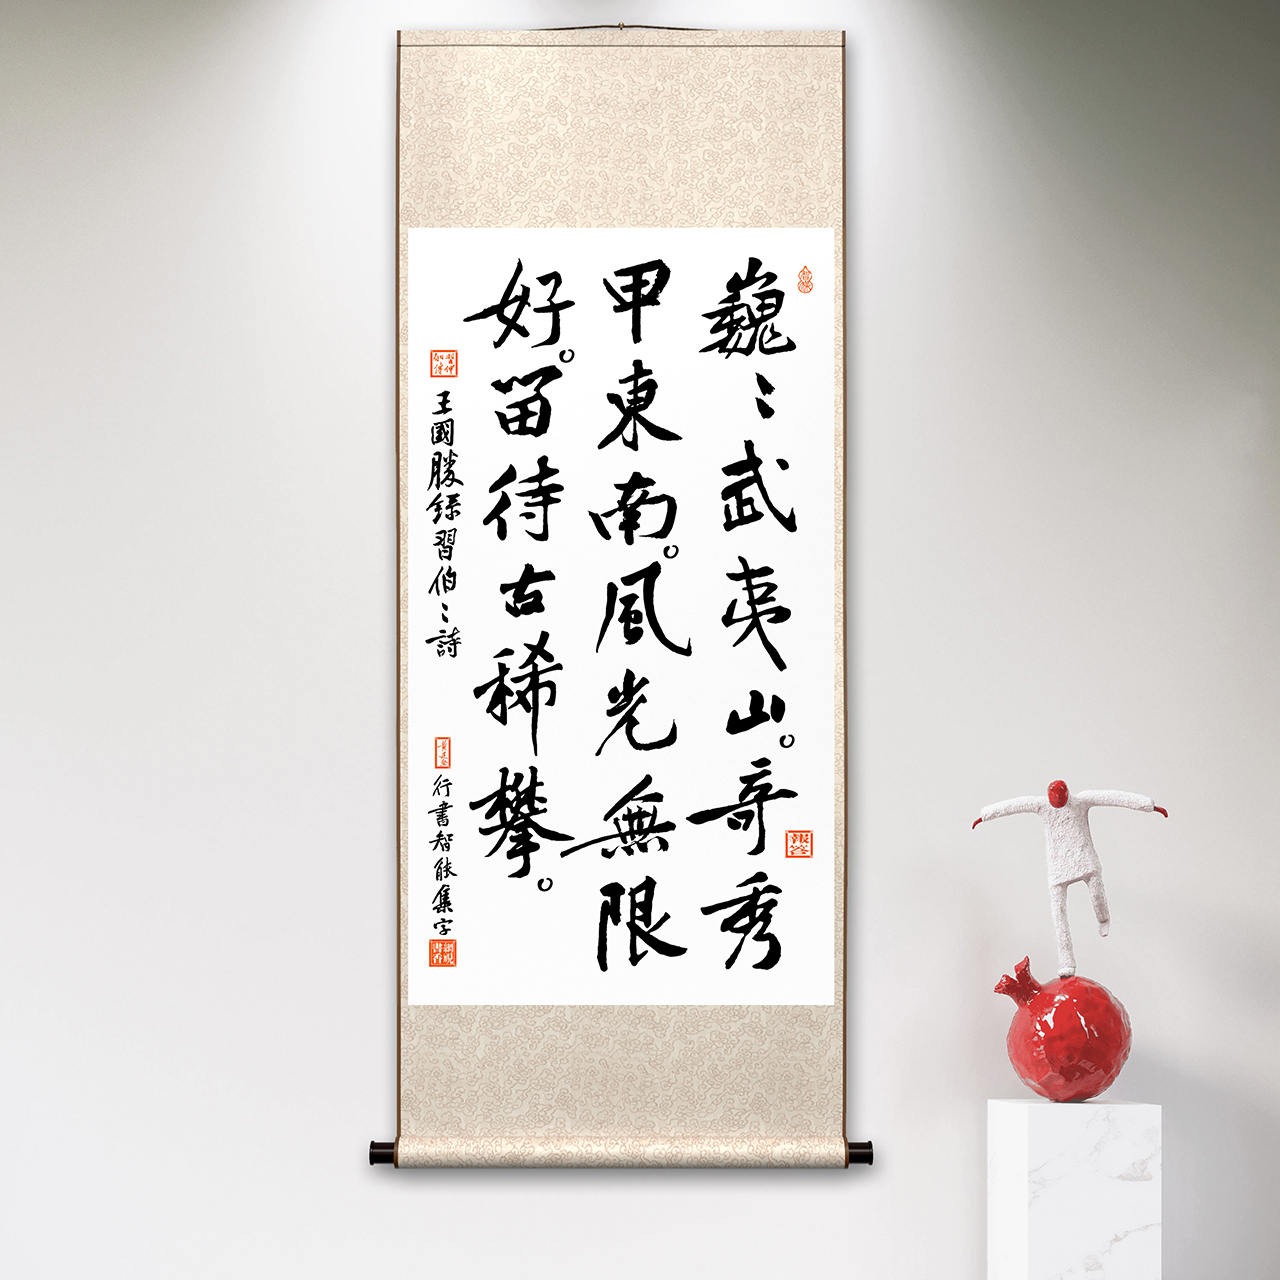 巍〻武夷山。奇秀
甲東南。風光無限
好。留待古稀攀。
王國勝錄習伯〻詩
行書智能集字
報答